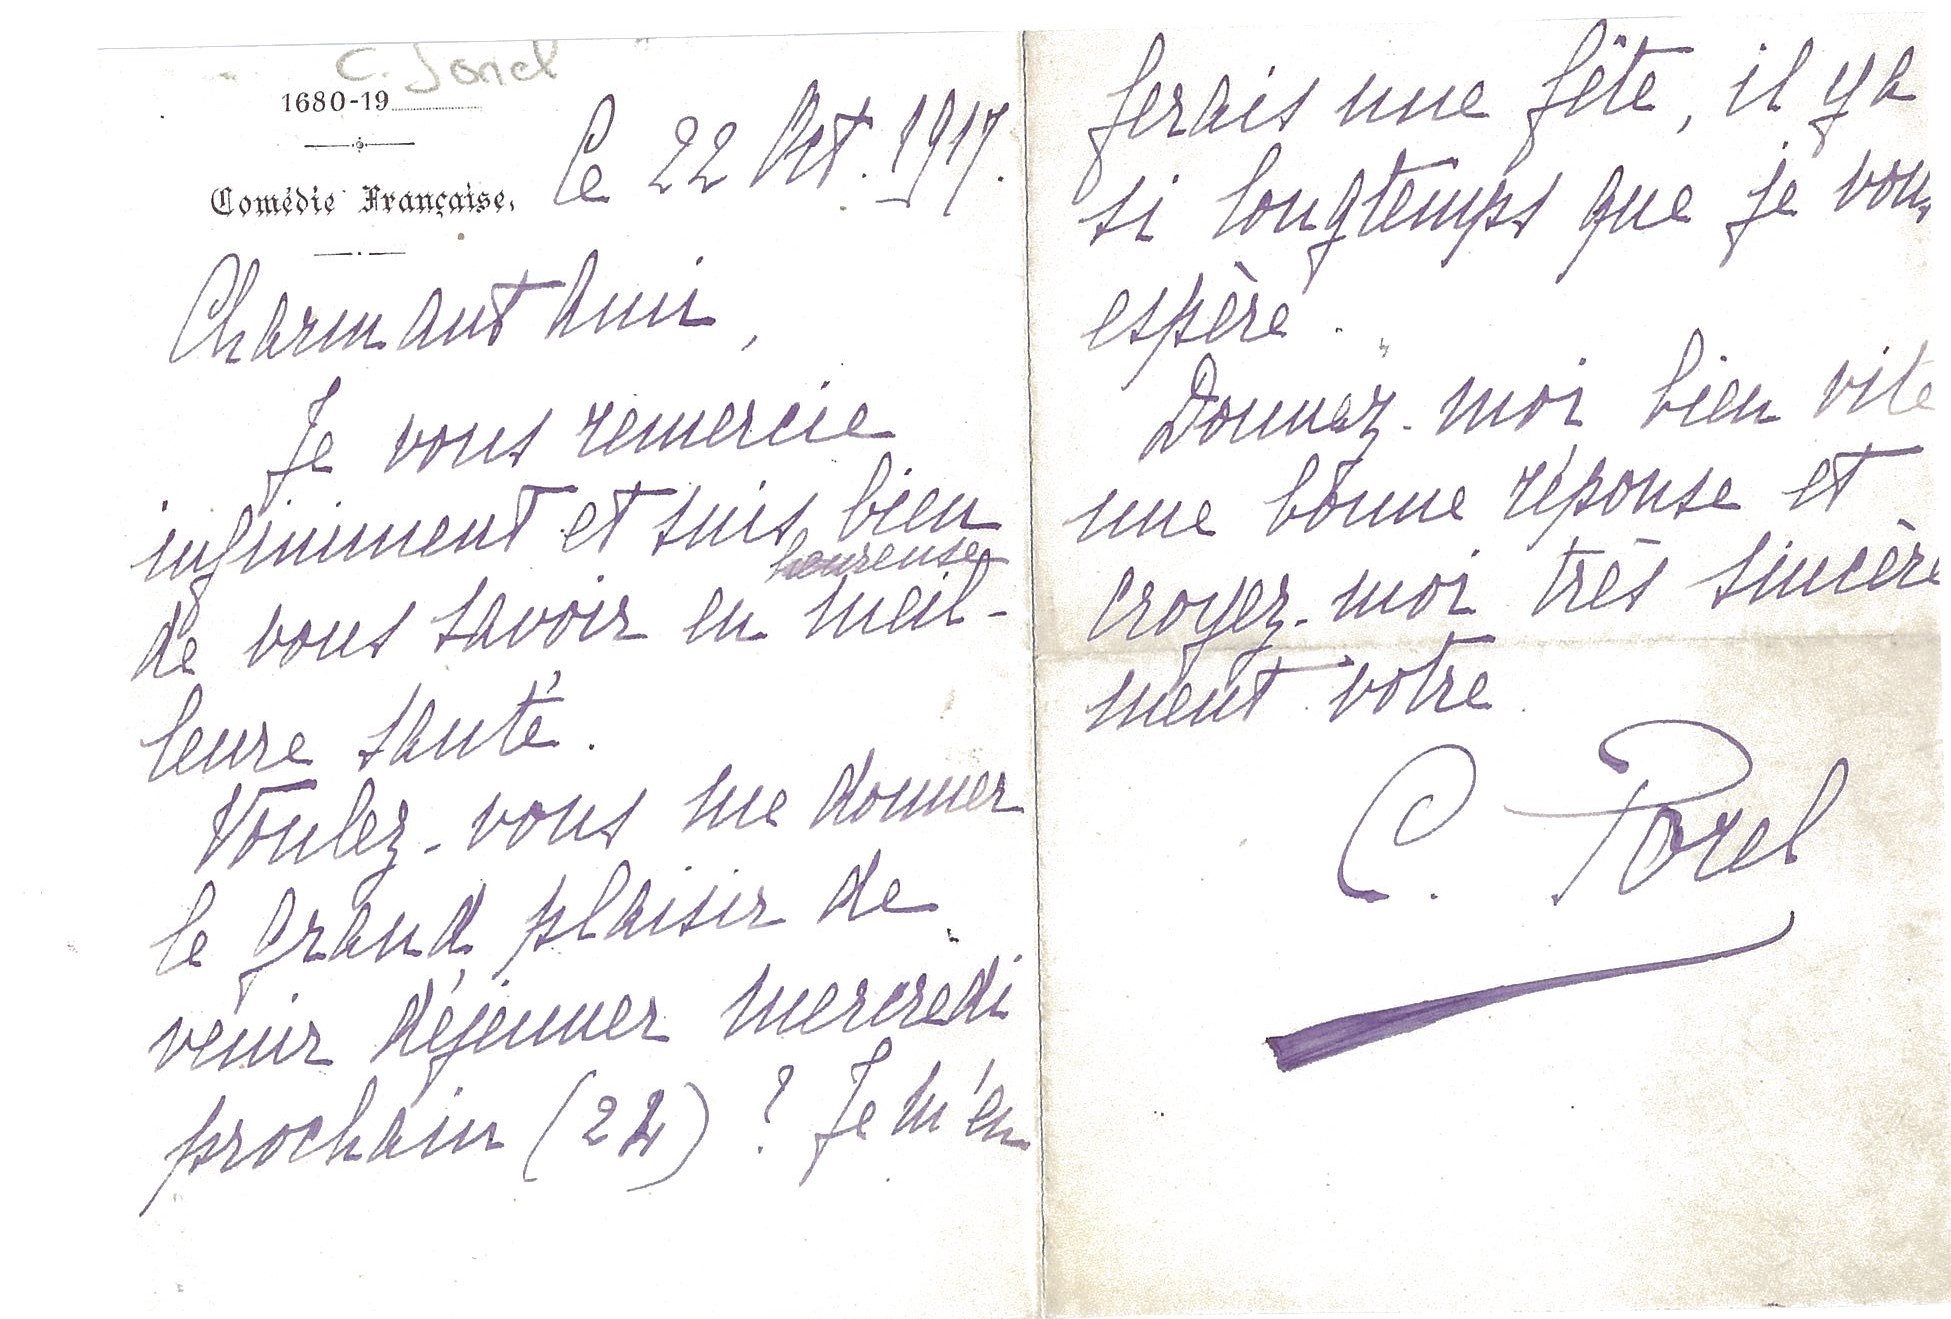 C. Sorel
1680-19
Comédie Française.
Le 22 Oct. 1917.
Charmant ami,
Je vous remercie
infiniment et suis bien
heureuse
de vous savoir en meil-
leure santé.
Voulez-vous me donner
le grand plaisir de
venir déjeuner mercredi
prochain (24) ? Je m'en
ferais une fête, il y a
si longtemps que je vous
espère.
Donnez-moi bien vite
une bonne réponse et
croyez-moi très sincère
ment votre
C. Sorel